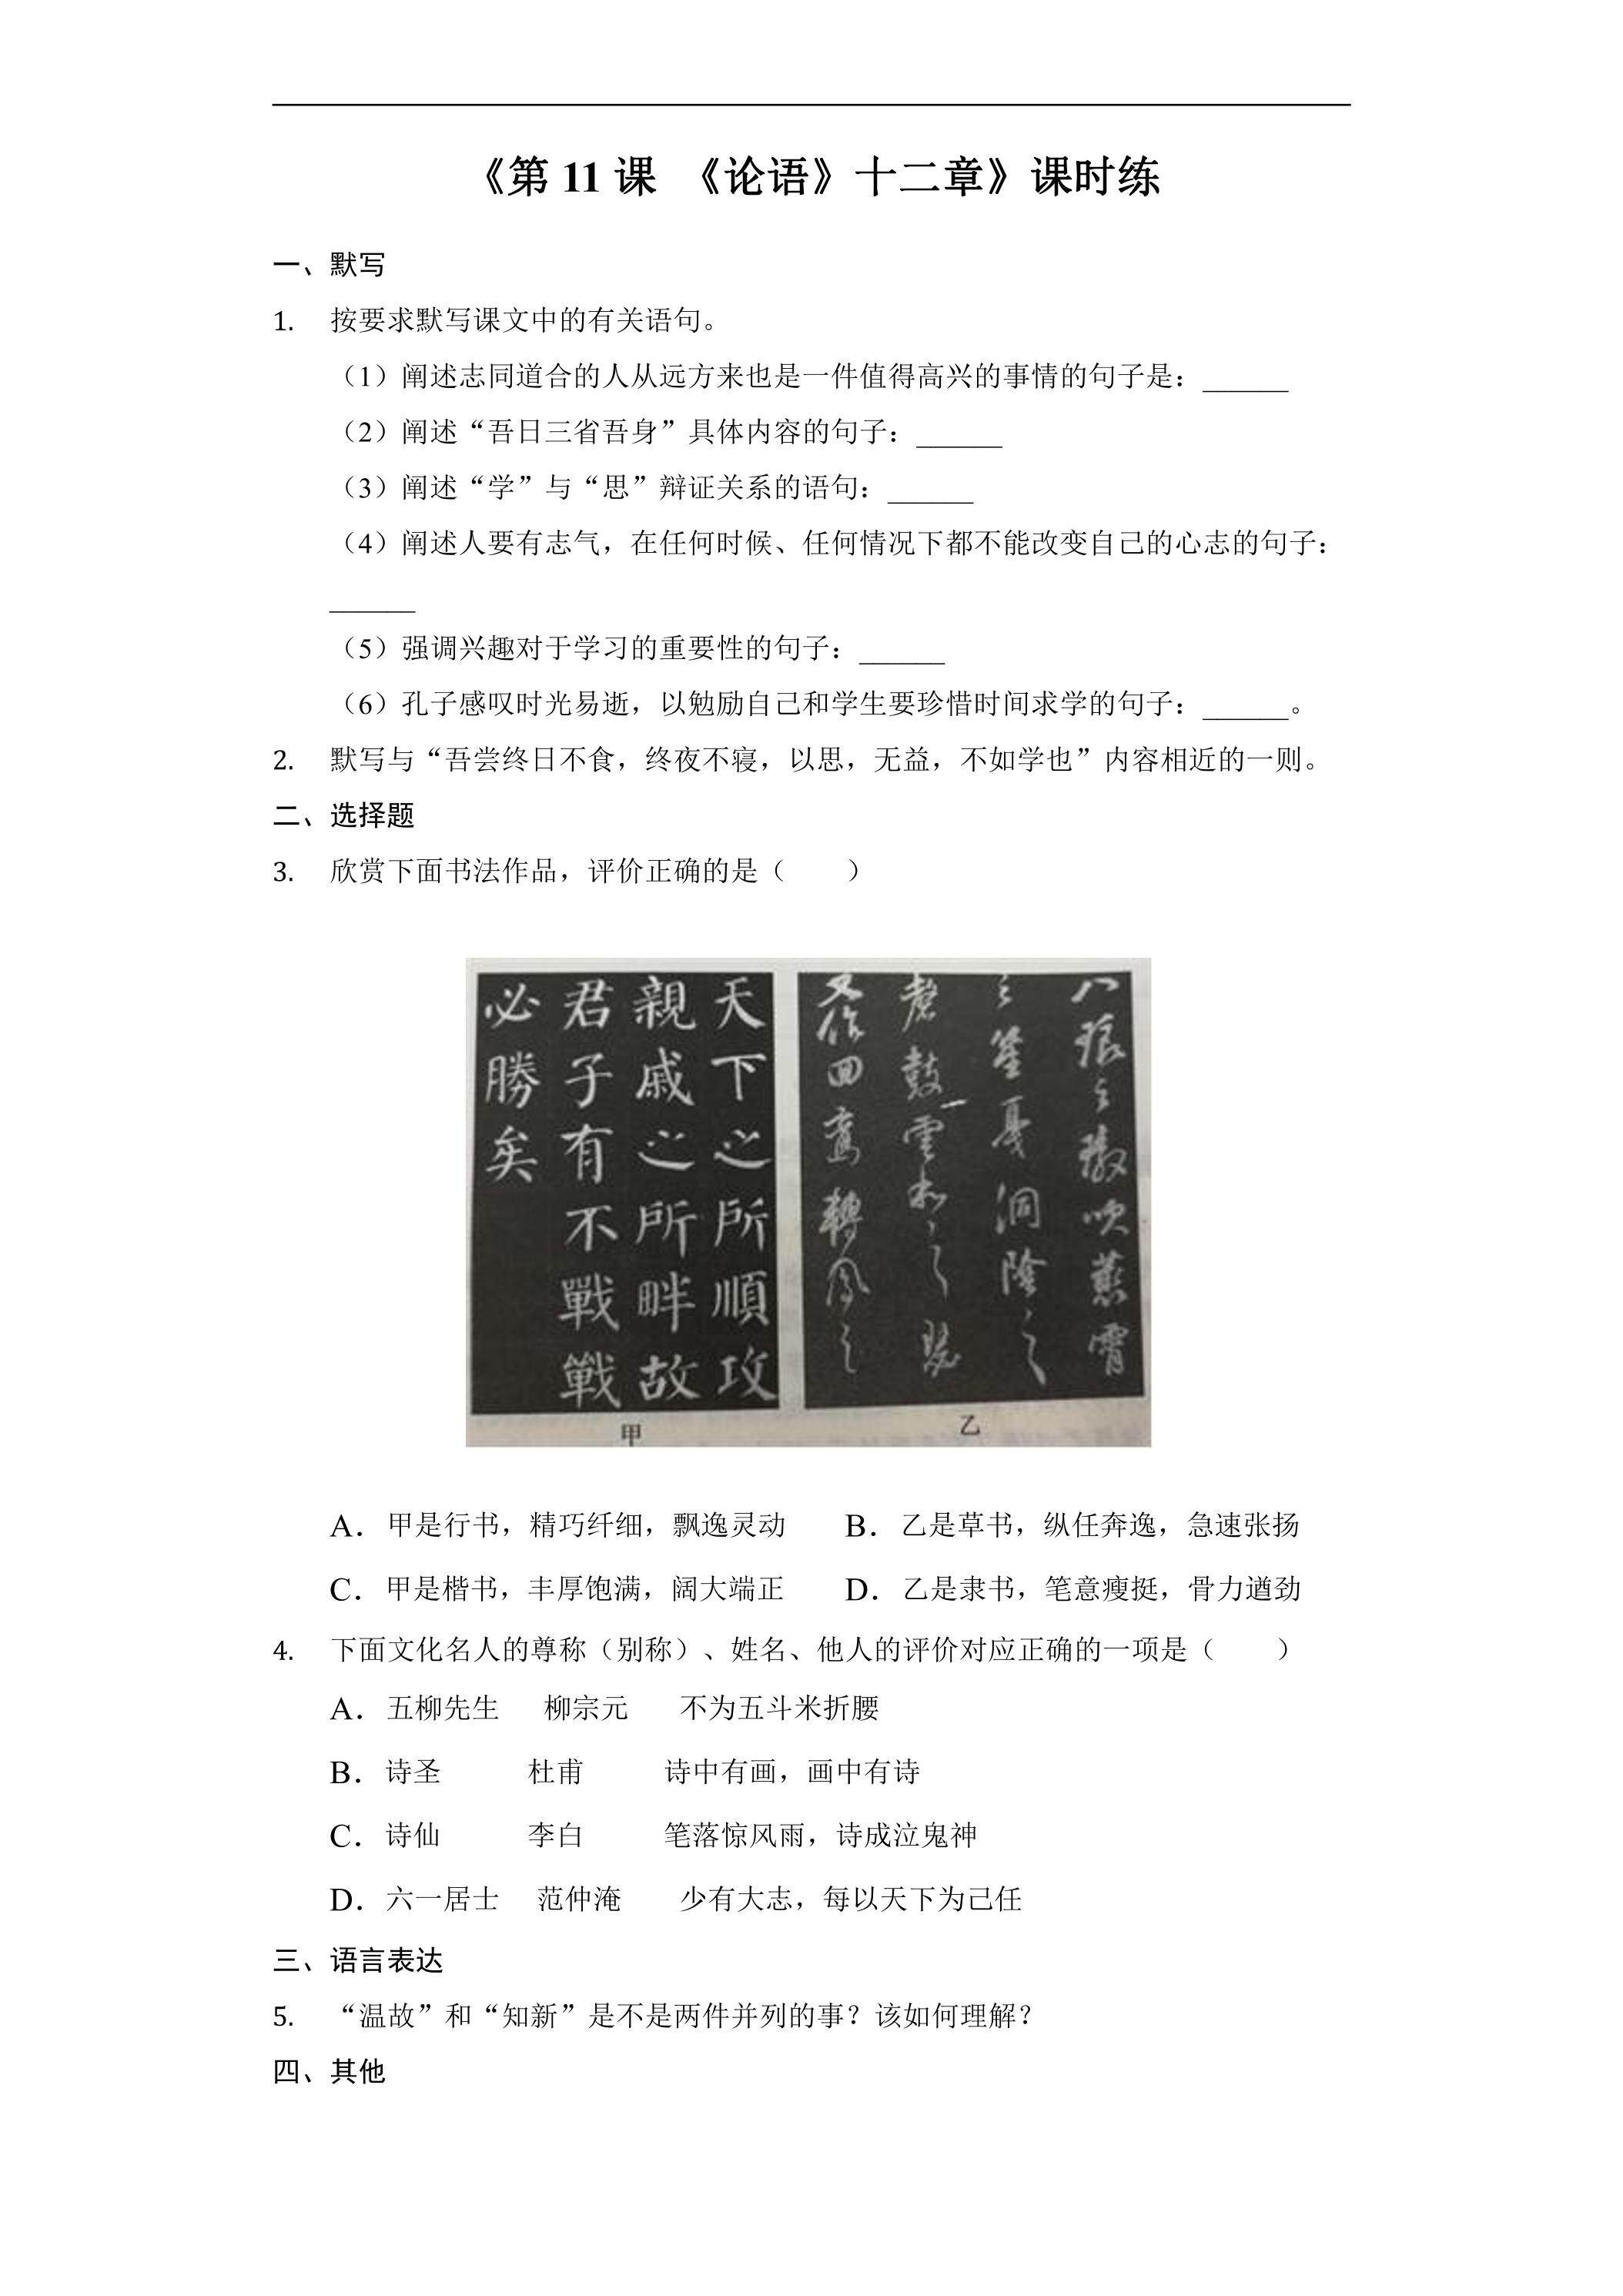 《第 11 课 《论语》十二章》课时练
一、默写
1. 按要求默写课文中的有关语句。
（1）阐述志同道合的人从远方来也是一件值得高兴的事情的句子是：______
（2）阐述“吾日三省吾身”具体内容的句子：______
（3）阐述“学”与“思”辩证关系的语句：______
（4）阐述人要有志气，在任何时候、任何情况下都不能改变自己的心志的句子：
______
（5）强调兴趣对于学习的重要性的句子：______
（6）孔子感叹时光易逝，以勉励自己和学生要珍惜时间求学的句子：______。
2. 默写与“吾尝终日不食，终夜不寝，以思，无益，不如学也”内容相近的一则。
二、选择题
3. 欣赏下面书法作品，评价正确的是（　　）
天下之所順攻
親戚之所畔故
君子有不戰戰
必勝矣
甲
乙
A．甲是行书，精巧纤细，飘逸灵动　　B．乙是草书，纵任奔逸，急速张扬
C．甲是楷书，丰厚饱满，阔大端正　　D．乙是隶书，笔意瘦挺，骨力遒劲
4. 下面文化名人的尊称（别称）、姓名、他人的评价对应正确的一项是（　　）
A．五柳先生　柳宗元　不为五斗米折腰
B．诗圣　杜甫　诗中有画，画中有诗
C．诗仙　李白　笔落惊风雨，诗成泣鬼神
D．六一居士　范仲淹　少有大志，每以天下为己任
三、语言表达
5. “温故”和“知新”是不是两件并列的事？该如何理解？
四、其他